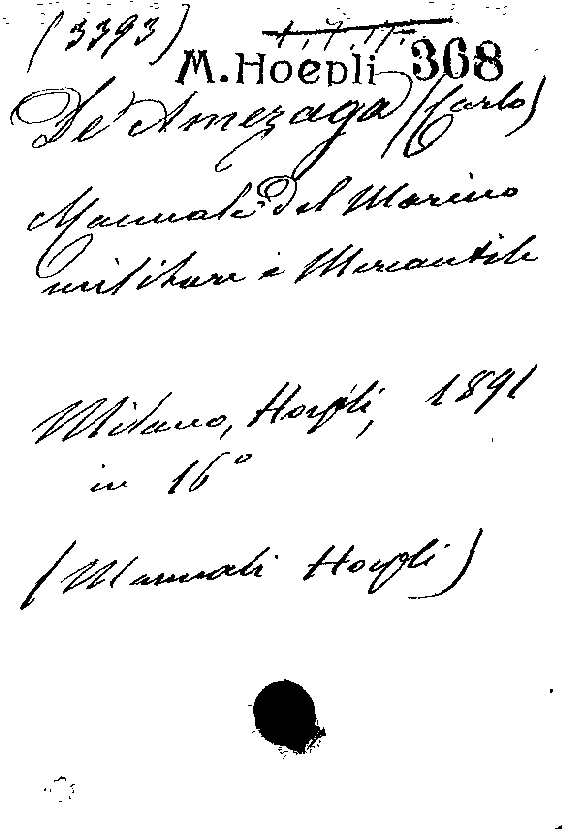 (3393)
M. Hoepli 368
De Amezaga (Carlo)
Manuale del Marino
militare e Mercantile
Milano, Hoepli, 1891
in 16°
(Manuali Hoepli)